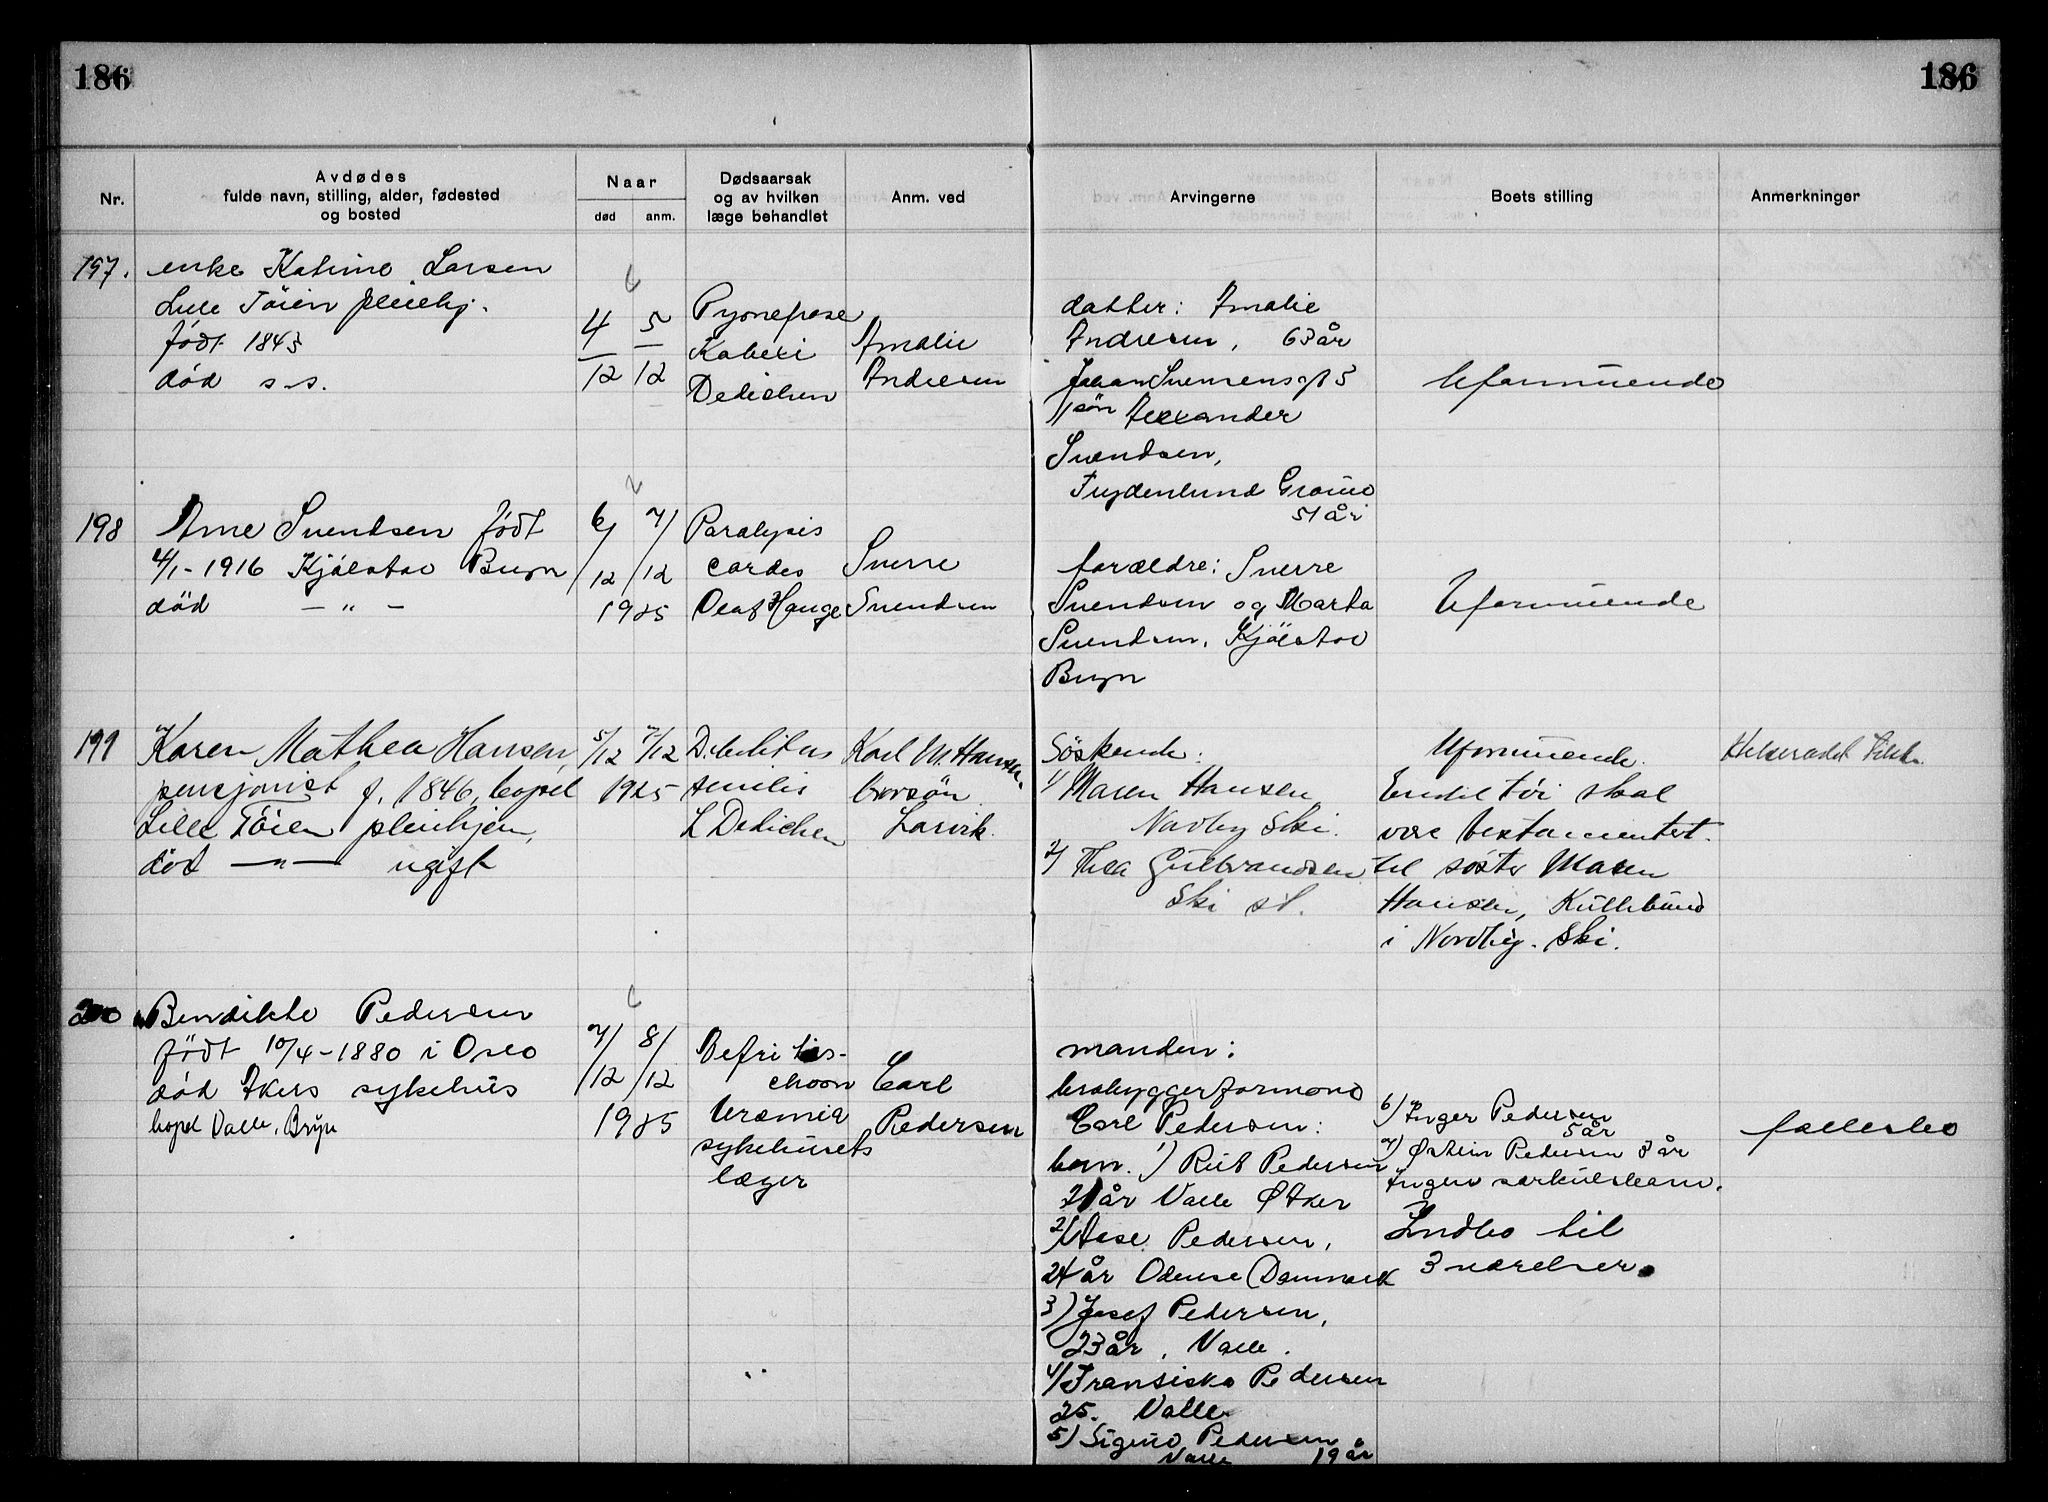 186
186
Nr.
Avdødes
fulde navn, stilling, alder, fødested
og bosted
Naar
død
anm.
Dødsaarsak
og av hvilken
læge behandlet
Anm. ved
Arvingerne
Boets stilling
Anmerkninger
197.
enke Katrine Larsen
Lille Töien pleiehj.
født 1843
död s.s.
4/12
5/12
Pyonefrose
Dedichen
Amalie
Andresen
datter: Amalie
Andresen, 63 år
Johan Svensensgt 3
sön Alexander
Svendsen,
Frydenlund Gromo
51 år
Uformuende
198
Arne Svendsen født
4/1-1916 Kjölstad Bryn
död — " —
6/12
7/12
1925
Paralysis
cordes
Olaf Hauge
Sverre
Svendsen
forældre: Sverre
Svendsen og Marta
Svendsen, Kjölstad
Bryn
Uformuende
199
Karen Mathea Hansen,
pensjonist f. 1846, bopel
Lille Töien pleiehjem,
död — " — ugift
5/12
7/12
1925
Debilitas
senilis
L Dedichen
Karl M. Hansen
brorsön
Larvik.
Söskende:
1) Maren Hansen
Nordby Ski.
2) Thea Gulbrandsen
Ski st.
Uformuende.
Endel töi skal
være testamentert
til søster Maren
Hansen, Kullebund
i Nordby. Ski.
Helserådet
200
Bendikte Pedersen
født 10/4-1880 i Oslo
död Akers sykehus
bopel Valle, Bryn
7/12
8/12
1925
Uræmia
sykehusets
læger
Carl
Pedersen
manden:
brobyggerformand
Carl Pedersen:
barn. 1) Rut Pedersen
21 år Valle Ø Aker
2) Aase Pedersen,
24 år Odense Danmark
3) Josef Pedersen,
23 år, Valle.
4) Fransiska Pedersen
25. Valle
5) Sigurd Pedersen
Valle 19 år
6) Inger Pedersen
5 år
7) Østein Pedersen 8 år
Ingen særkulsbarn.
Indbo til
3 værelser.
fællesbo